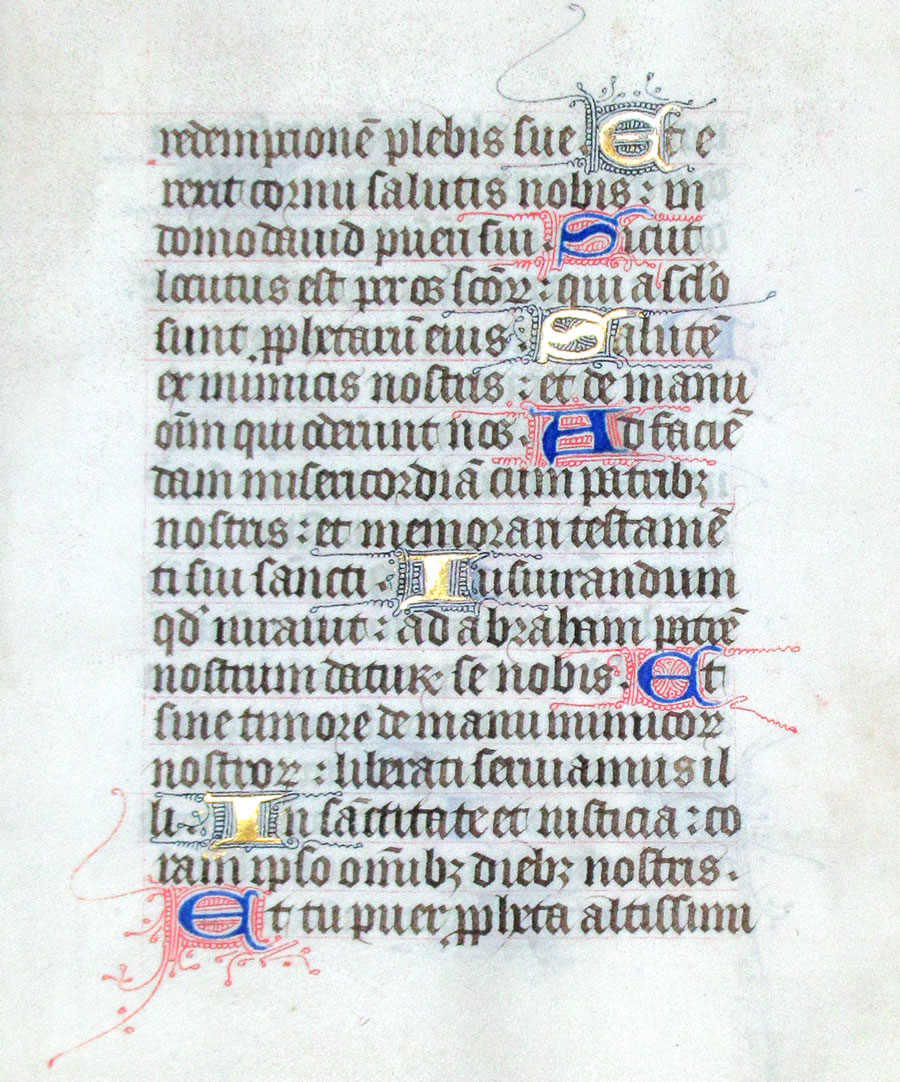 redemptionē plebis sue. Et e
rexit cornu salutis nobis: in
domo dauid pueri sui. Sicut
locutus est per os scōꝝ: qui a sclō
sunt ꝓphetarū eius. Salutē
ex inimicis nostris: et de manu
oīm qui oderunt nos. Ad faciē
dam misericordiā cum patribꝫ
nostris: et memorari testamē
ti sui sancti. Iusiurandum
qd' iurauit: ad abraham patrē
nostrum daturꝝ se nobis. Et
sine timore de manu inimicoꝝ
nostroꝝ: liberati seruiamus il
li. In sātitate et iusticia: co
ram ipso om̄ibꝫ diebꝫ nostris.
Et tu puer ꝓpheta altissimi